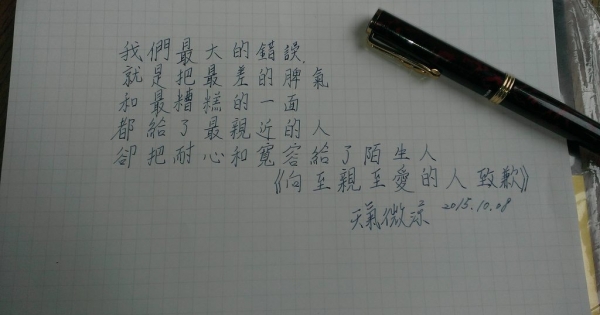 我們最大的錯誤,
就是把最差的脾氣
和最糟糕的一面
都給了最親近的人
卻把耐心和寬容給了陌生人
《向至親至愛的人致歉》
天氣微涼 2015.10.08